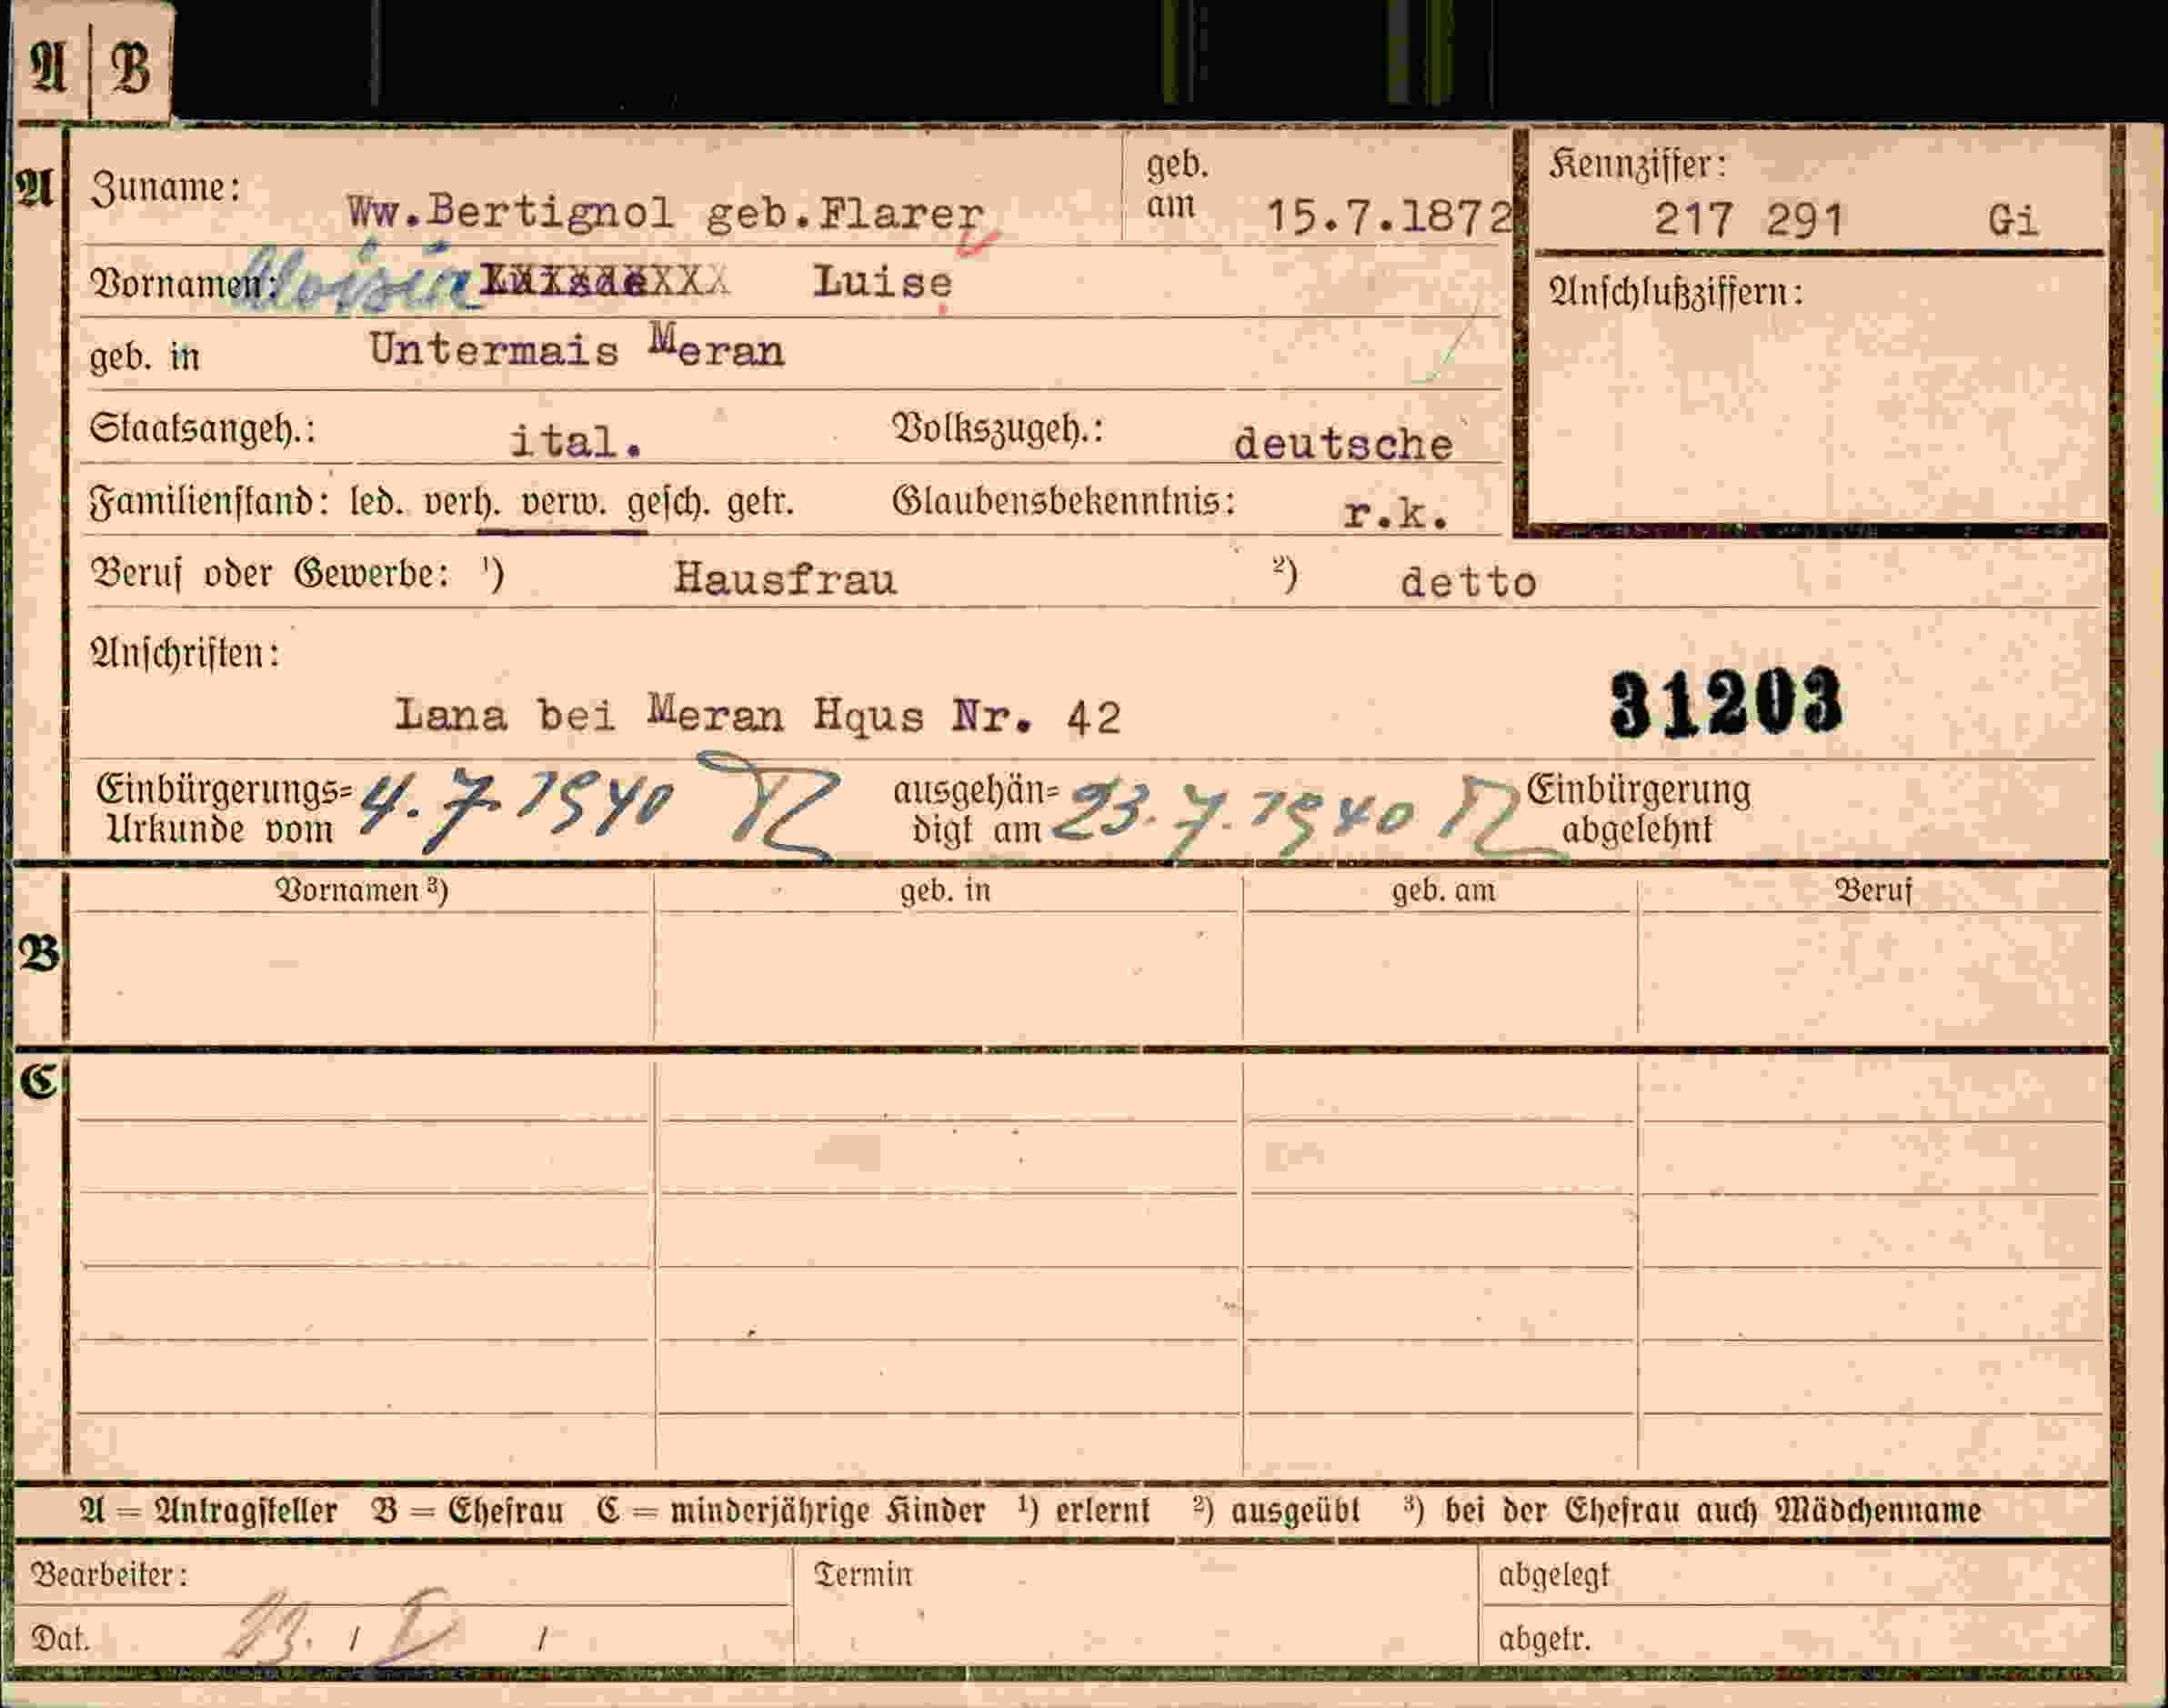 A | B
A
Zuname: Ww.Bertignol geb.Flarer
geb. am 15.7.1872
Kennziffer: 217 291 Gi
Vornamen: Aloisia Luise
Anschlußziffern:
geb. in Untermais Meran
Staatsangeh.: ital. Volkszugeh.: deutsche
Familienstand: led. verh. verw. gesch. getr. Glaubensbekenntnis: r.k.
Beruf oder Gewerbe: ¹) Hausfrau ²) detto
Anschriften:
Lana bei Meran Hqus Nr. 42
31203
Einbürgerungs=Urkunde vom 4.7.1940
ausgehän=digt am 23.7.1940
Einbürgerung abgelehnt
Vornamen ³) geb. in geb. am Beruf
B
C
A = Antragsteller B = Ehefrau C = minderjährige Kinder ¹) erlernt ²) ausgeübt ³) bei der Ehefrau auch Mädchenname
Bearbeiter: Termin abgelegt
Dat. 23. / / abgetr.